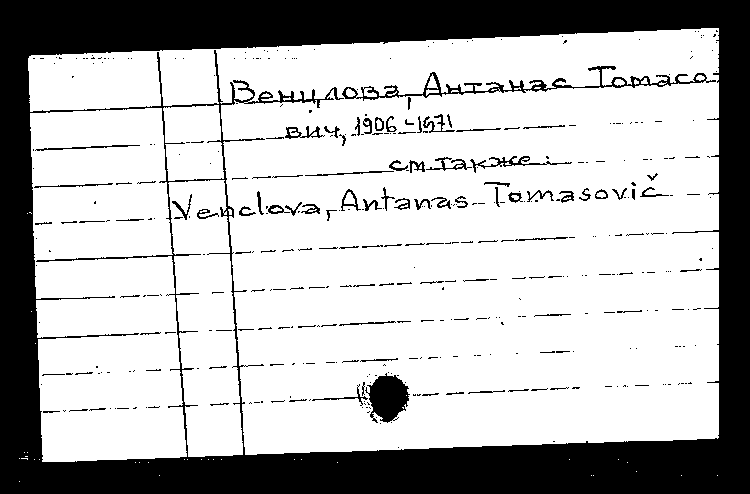 Венцлова, Антанас Томасо-
вич, 1906-1971
см. также:
Venclova, Antanas Tomasovič